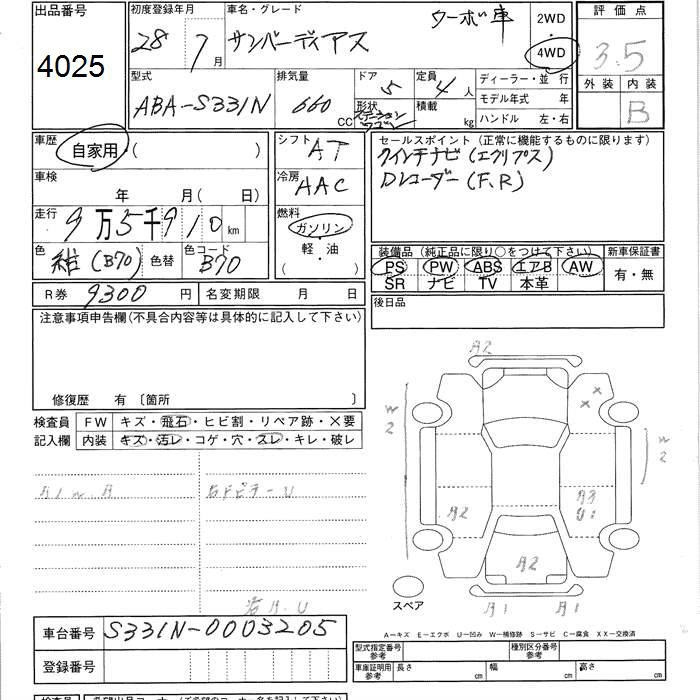 出品番号 初度登録年月 車名・グレード ターボ車 2WD 評価点
4025 28 7月 サンバーディアス 4WD 3.5
型式 排気量 ドア 5 定員 4人 ディーラー・並行 外装 内装
ABA-S331N 660CC 形状 ステーションワゴン 積載 kg モデル年式 年 B
ハンドル 左・右
車歴 自家用 ( ) シフト AT セールスポイント (正常に機能するものに限ります)
8インチナビ(エクリプス)
車検 年 月(日) 冷房 AAC Dレコーダー(F,R)
走行 9万5千910km 燃料 ガソリン
軽・油
( ) 装備品 (純正品に限り○をつけて下さい) 新車保証書
色 紺(B70) 色替 色コード B70 PS PW ABS エアB AW 有・無
SR ナビ TV 本革
R券 9300円 名変期限 月 日 後日品
注意事項申告欄(不具合内容等は具体的に記入して下さい)
修復歴 有 〔箇所 〕
検査員 FW キズ・飛石・ヒビ割・リペア跡・×要
記入欄 内装 キズ・汚レ・コゲ・穴・スレ・キレ・破レ
A2
× ×
W2 W2
A1 W.A 右Fピラ-U
A2 A3
U1
A2
スペア A1 A1
A-キズ E-エクボ U-凹み W-補修跡 S-サビ C-腐食 XX-交換済
車台番号 S331N-0003205
型式指定番号 参考 種別区分番号 参考
登録番号 車庫証明用 参考 長さ cm 幅 cm 高さ cm